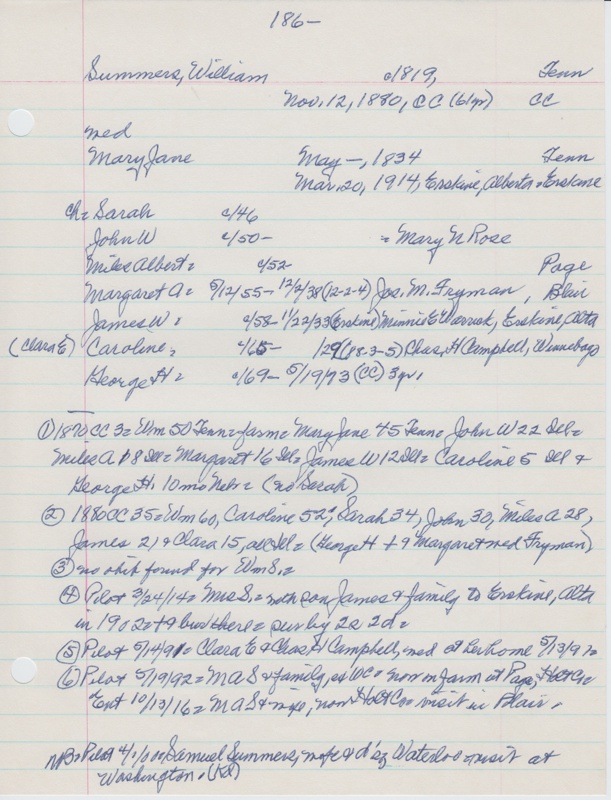 186-
Summers, William c1819, Tenn
Nov. 12, 1880, CC (61yr) CC
med
Mary Jane May —, 1834 Tenn
Mar. 20, 1914, Erskine, Alberta = Erskine
ch = Sarah c/46
John W c/50- = Mary N Rose
Miles Albert = c/52- Page
Margaret A = 5/12/55- 12/2/38 (12-2-4) Jos. M. Fryman, Blair
James W = c/58- 11/22/33 (Erskine) Minnie E Warrick, Erskine, Alta
(Clara E) Caroline = c/65- 1/29 (88-3-5) Chas. H Campbell, Winnebago
George H = c/69- 5/19/73 (CC) 3yr.
① 1870 CC 3 = Wm 50 Tenn = farm = Mary Jane 45 Tenn = John W 22 Ill =
Miles A 18 Ill = Margaret 16 Ill = James W 12 Ill = Caroline 5 Ill &
George H. 10 mo Nebr = (no Sarah)
② 1880 CC 35 = Wm 60, Caroline 52, Sarah 34, John 30, Miles A 28,
James 21 & Clara 15, all Ill = (George H + & Margaret med Fryman)
③ no obit found for Wm S. =
④ Pilot 3/24/14 = Mrs S. = with son James & family to Erskine, Alta
in 1902 = + & bur there = surv by 2s 2d =
⑤ Pilot 5/14/91 = Clara E & Chas. H Campbell, med at her home 5/13/91 =
⑥ Pilot 5/19/92 = M A S & family, ex WC = now on farm at Page, Holt Co =
Ent 10/13/16 = M A S & wife, now Holt Co = visit in Blair.
NB = Pilot 4/1/00 = Samuel Summers, wife & d' of Waterloo = visit at
Washington. (Kd)